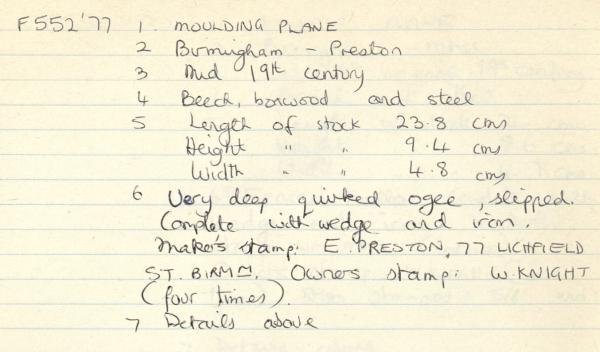 F552'77 1 MOULDING PLANE
2 Birmingham - Preston
3 Mid 19th century
4 Beech, boxwood and steel
5 Length of stock 23.8 cms
Height " " 9.4 cms
Width " " 4.8 cms
6 Very deep quirked ogee, slipped.
Complete with wedge and iron.
Maker's stamp: E. PRESTON, 77 LICHFIELD
ST. BIRMM. Owners stamp: W. KNIGHT
(four times).
7 Details above